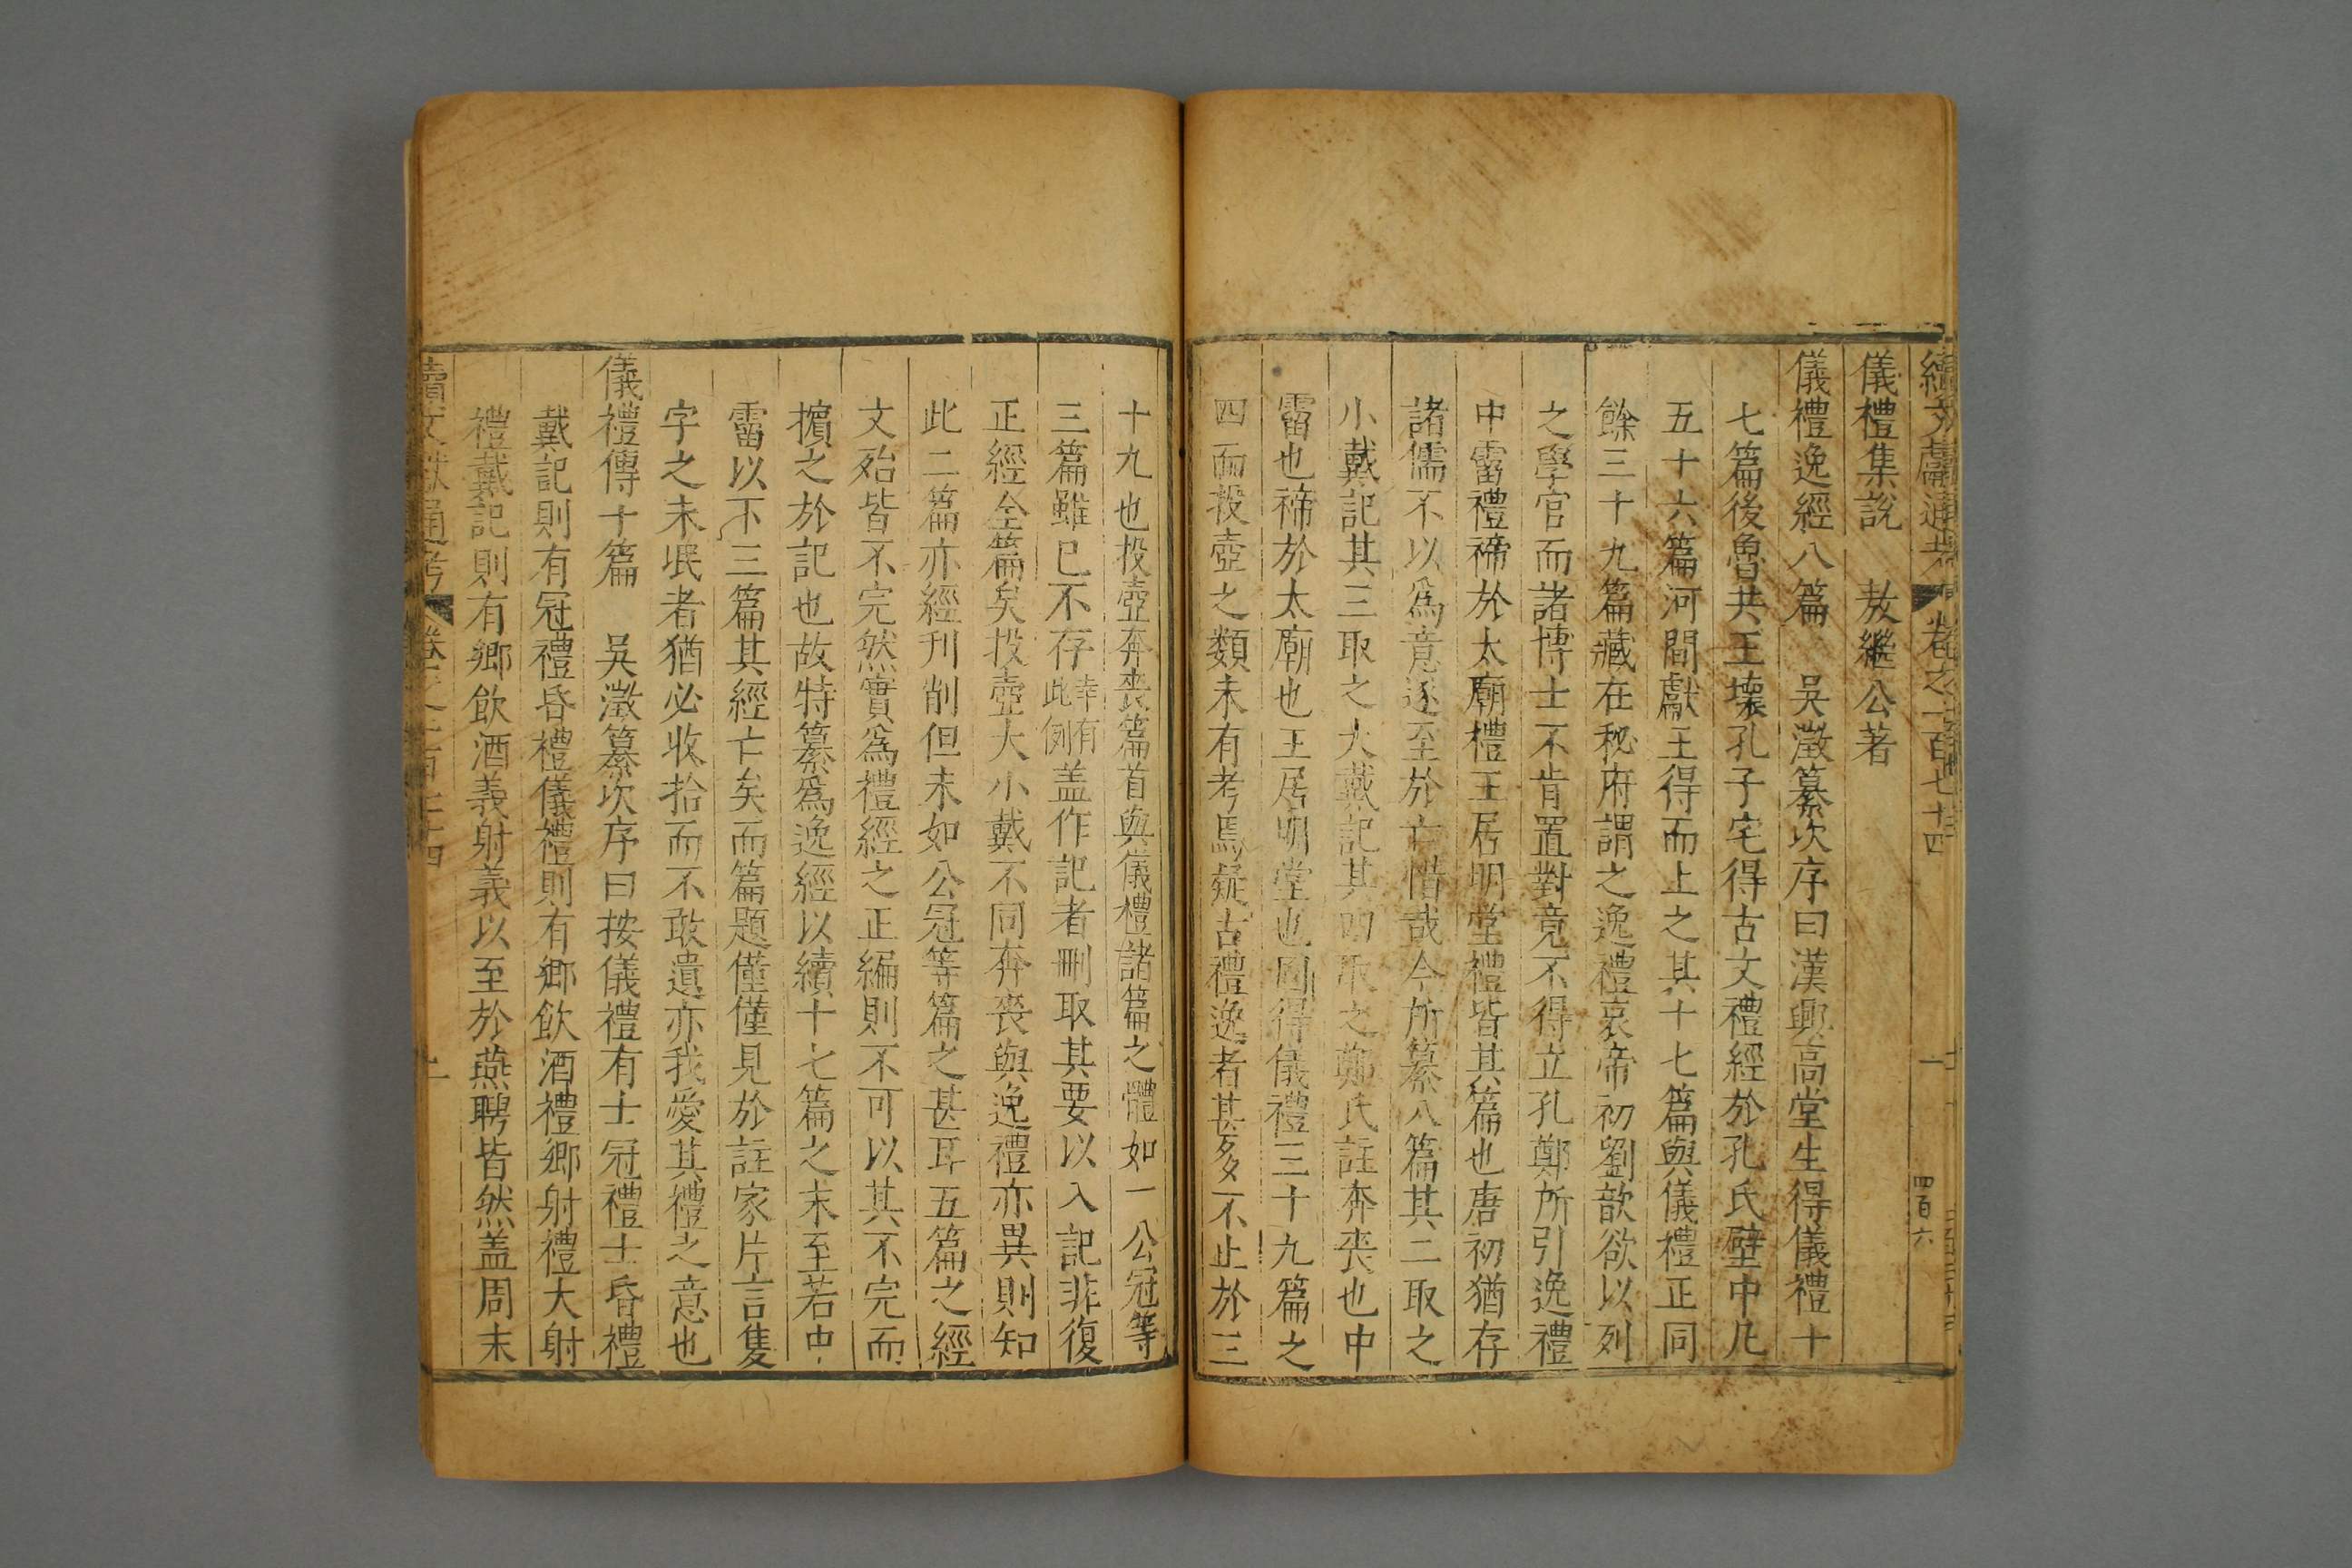 續文獻通考 卷之一百七十四 一 四百六
儀禮集說 敖繼公著
儀禮逸經八篇 吳澂纂次序曰漢興高堂生得儀禮十
七篇後魯共王壞孔子宅得古文禮經於孔氏壁中凡
五十六篇河間獻王得而上之其十七篇與儀禮正同
餘三十九篇藏在秘府謂之逸禮哀帝初劉歆欲以列
之學官而諸博士不肯置對竟不得立孔鄭所引逸禮
中霤禮禘於太廟禮王居明堂禮皆其篇也唐初猶存
諸儒不以爲意遂至於亡惜哉今所纂八篇其二取之
小戴記其三取之大戴記其四取之鄭氏註奔喪也中
霤也禘於太廟也王居明堂也固得儀禮三十九篇之
四而投壺之類未有考焉疑古禮逸者甚多不止於三
十九也投壺奔喪篇首與儀禮諸篇之體如一公冠等
三篇雖已不存此例幸有盖作記者刪取其要以入記非復
正經全篇矣投壺大小戴不同奔喪與逸禮亦異則知
此二篇亦經刊削但未如公冠等篇之甚耳五篇之經
文殆皆不完然實爲禮經之正編則不可以其不完而
擯之於記也故特纂爲逸經以續十七篇之末至若中
霤以下三篇其經亡矣而篇題僅僅見於註家片言隻
字之未泯者猶必收拾而不敢遺亦我愛其禮之意也
儀禮傳十篇 吳澂纂次序曰按儀禮有士冠禮士昏禮
戴記則有冠禮昏禮儀禮則有鄉飲酒禮鄉射禮大射
禮戴記則有鄉飲酒義射義以至於燕聘皆然盖周末
續文獻通考 卷之一百七十四 二